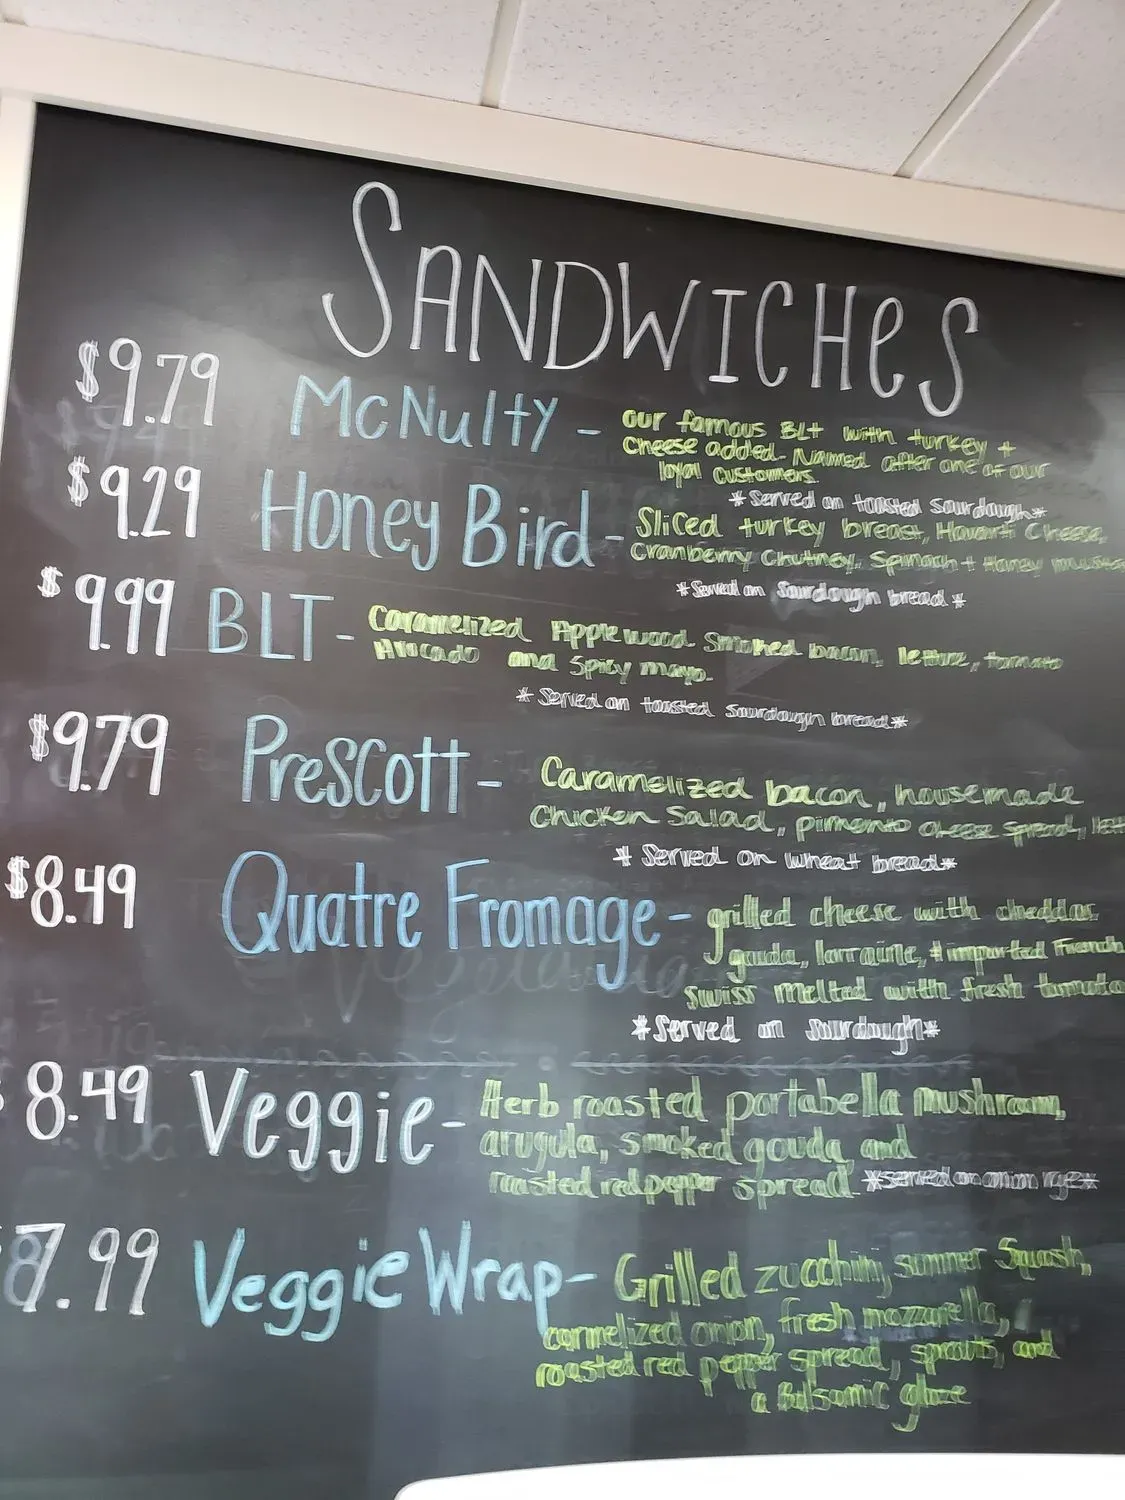 SANDWICHES
$9.79 McNulty - our famous BLT with turkey +
Cheese added. Named after one of our
loyal customers.
*Served on toasted Sourdough*
$9.29 Honey Bird - Sliced turkey breast, Havarti Cheese,
Cranberry Chutney, Spinach + Honey
*Served on Sourdough bread*
$9.99 BLT - Caramelized Applewood Smoked bacon, lettuce, tomato
Avocado and Spicy mayo.
*Served on toasted Sourdough bread*
$9.79 Prescott - Caramelized bacon, housemade
Chicken Salad, pimento cheese spread,
*Served on wheat bread*
$8.49 Quatre Fromage - grilled cheese with cheddar,
gouda, lorraine, + imported French
Swiss melted with fresh tomato
*Served on sourdough*
8.49 Veggie - Herb roasted portabella mushroom,
arugula, smoked gouda, and
roasted red pepper spread. *served on onion rye*
7.99 Veggie Wrap - Grilled zucchini, summer squash,
carmelized onion, fresh mozzarella,
roasted red pepper spread, sprouts, and
a Balsamic glaze